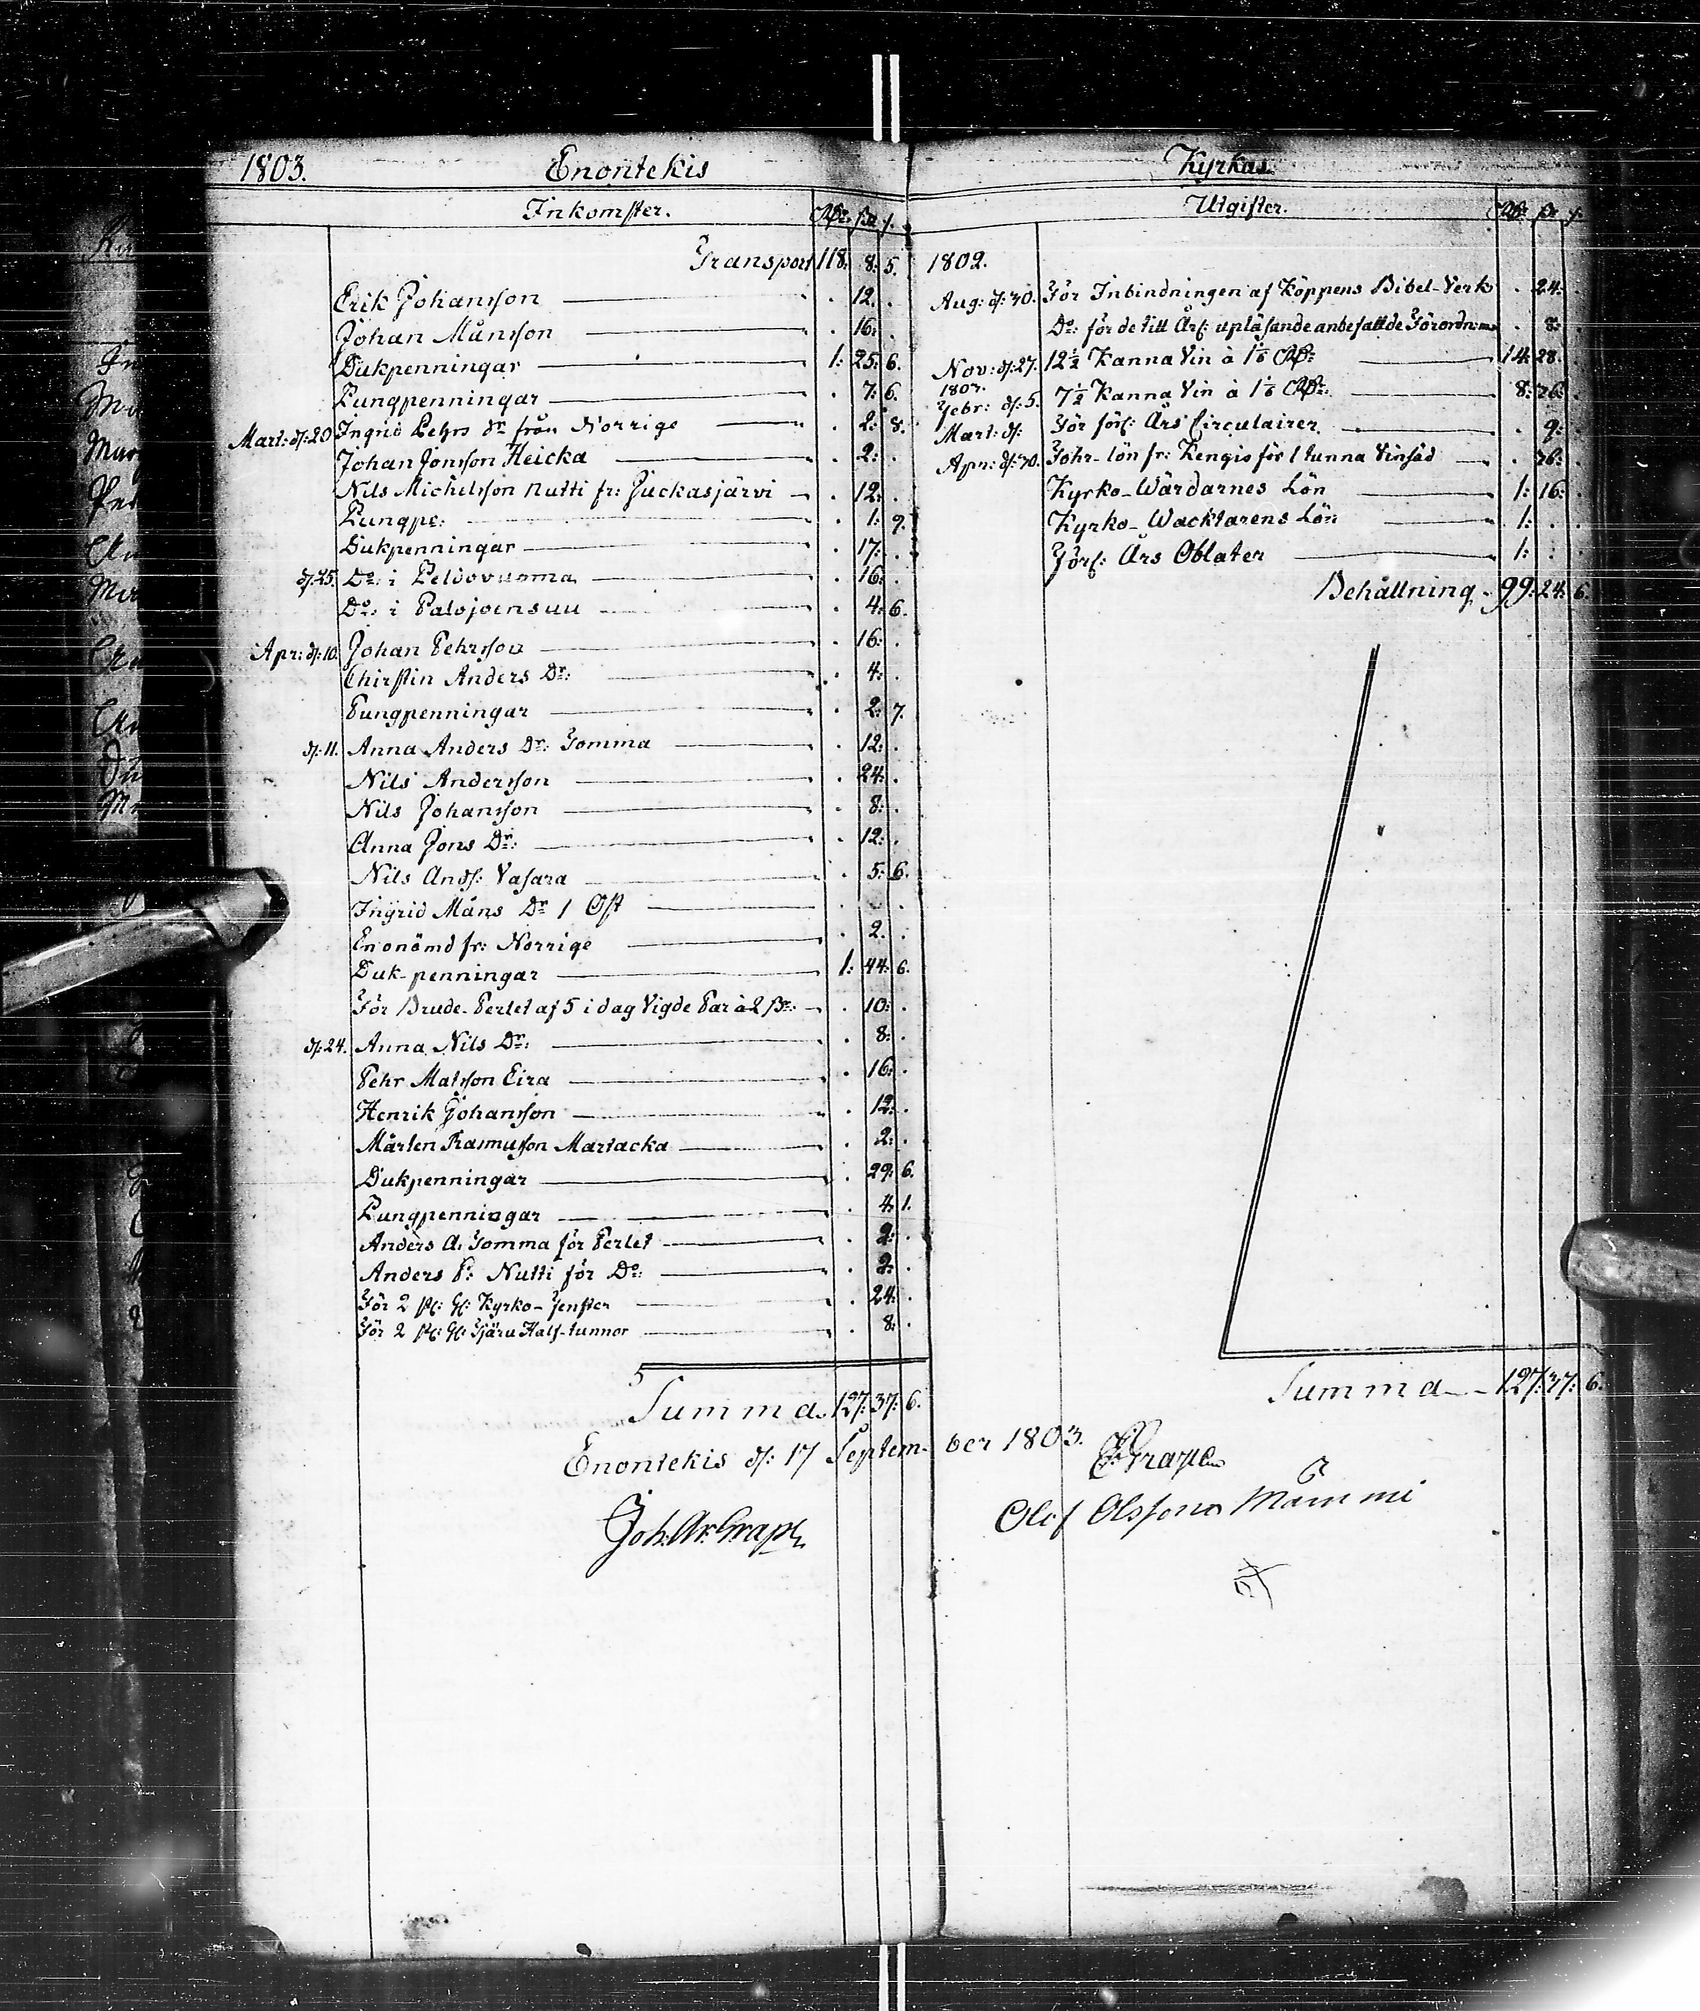 1803. Enontekis
Inkomster. Rdr. ßr. /.
Transport 118: 8: 5.
Erik Johansson . 12. .
Johan Månsson . 16: .
Dukpenningar 1: 25: 6.
Pungpenningar . 7: 6.
Mart: d/: 20 Ingrid Pehrs Dr från Norrige . 2: 8.
Johan Jonsson Heicka . 2: .
Nils Michelsson Nutti fr: Juckasjärvi . 12: .
Pungpe: . 1: 9.
Dukpenningar . 17: .
d/: 25. Do: i Peldovuoma . 16: .
Do: i Palojoensuu . 4: 6.
Apr: d/: 10. Johan Pehrsson . 16: .
Chirstin Anders Dr: . 4: .
Pungpenningar . 2: 7.
d/: 11. Anna Anders Dr: Somma . 12: .
Nils Andersson . 24: .
Nils Johansson . 8: .
Anna Jons Dr: . 12: .
Nils Ands: Vasara . 5: 6.
Ingrid Måns Dr 1 Ost . . .
En onämd fr: Norrige . 2. .
Duk-penningar 1: 44: 6.
För Brude-Perlet af 5 i dag Vigde Par à 2 ßr: . 10: .
d/: 24. Anna Nils Dr: . 8: .
Pehr Matsson Eira . 16: .
Henrik Johansson . 12: .
Mårten Rasmusson Martacka . 2: .
Dukpenningar . 29: 6.
Pungpenningar . 4: 1.
Anders A: Somma för Perlet . 2: .
Anders P: Nutti för Do: . 2: .
För 2 st: gl: Kyrko-Fenster . 24: .
För 2 st: gl: Tjäru Half-tunnor . 8: .
Summa 127: 37: 6.
Kyrkas
Utgifter. Rdr ßr /.
1802.
Aug: d/: 30. För Inbindningen af Köppens Bibel-Verk . 24: .
Do: för de till Års upläsande anbefallde Förordn:ar . 8: .
Nov: d/: 27. 12½ Kanna Vin à 1⅙ Rdr: 14: 28.
1803.
Febr: d/: 5. 7½ Kanna Vin à 1⅙ Rdr: 8: 36: .
Mart: d/: För förl: Års Circulairer . 9: .
Apr: d/: 30. Fohr-lön fr: Kengis för 1 tunna Vinsäd . 36: .
Kyrko-Wärdarnes Lön 1: 16: .
Kyrko-Wacktarens Lön 1: . .
Förl: Års Oblater 1: . .
Behållning 99: 24: 6.
Summa 127: 37: 6.
Enontekis d/: 17 September 1803.
Joh. Ar. Grape
E. Grape
Olof Olsson Mämmi